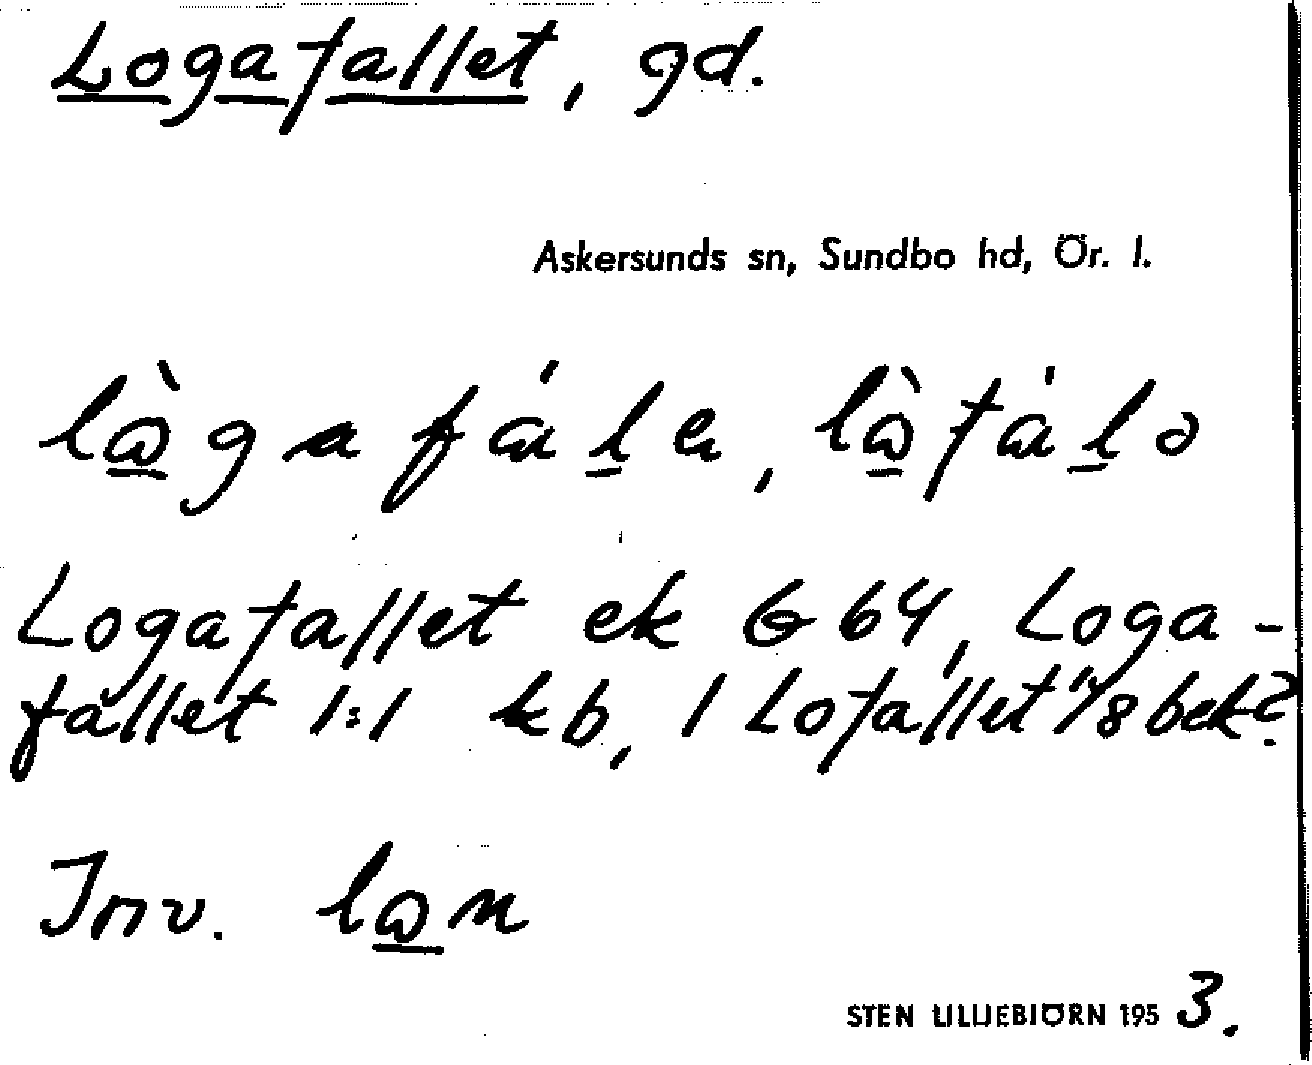 Logafallet, gd.
Askersunds sn, Sundbo hd, Ör. l.
Logafallet ek G 64, Loga-
fallet 1:1 kb, 1 Lofallet 1/8 bek?
Inv.
STEN LILLIEBIÖRN 1953.